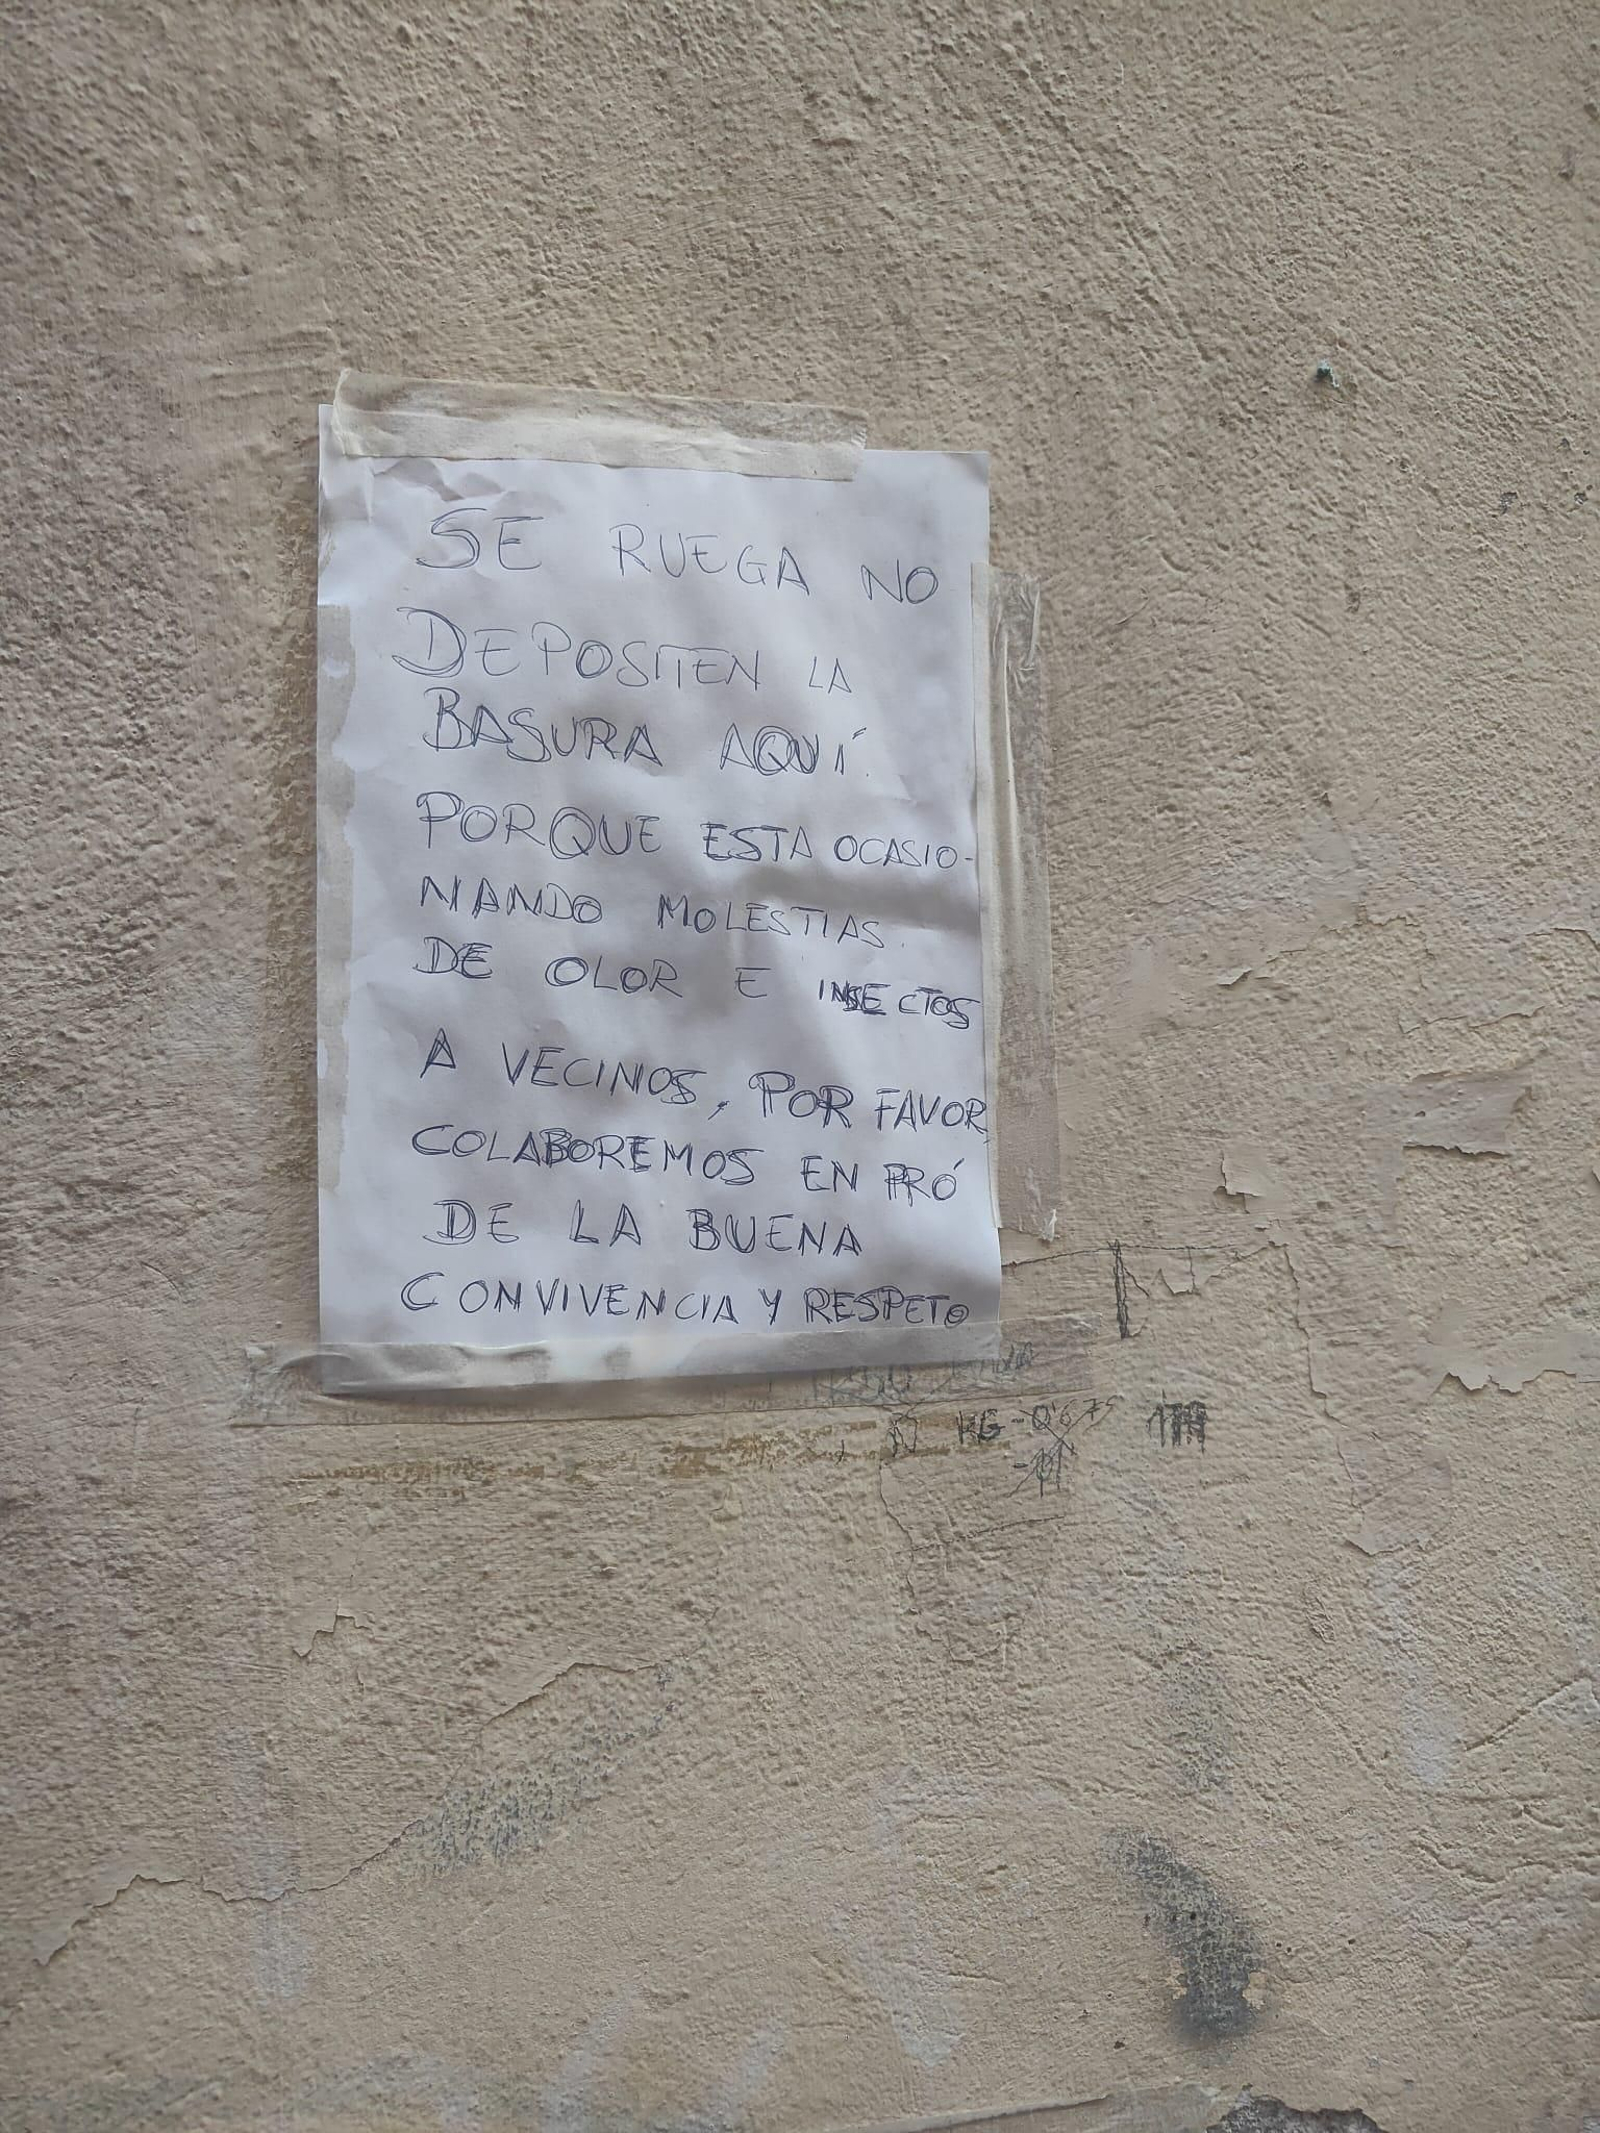 SE RUEGA NO
DEPOSITEN LA
BASURA AQUÍ.
PORQUE ESTA OCASIO-
NANDO MOLESTIAS.
DE OLOR E INSECTOS
A VECINOS, POR FAVOR,
COLABOREMOS EN PRÓ
DE LA BUENA
CONVIVENCIA Y RESPETO